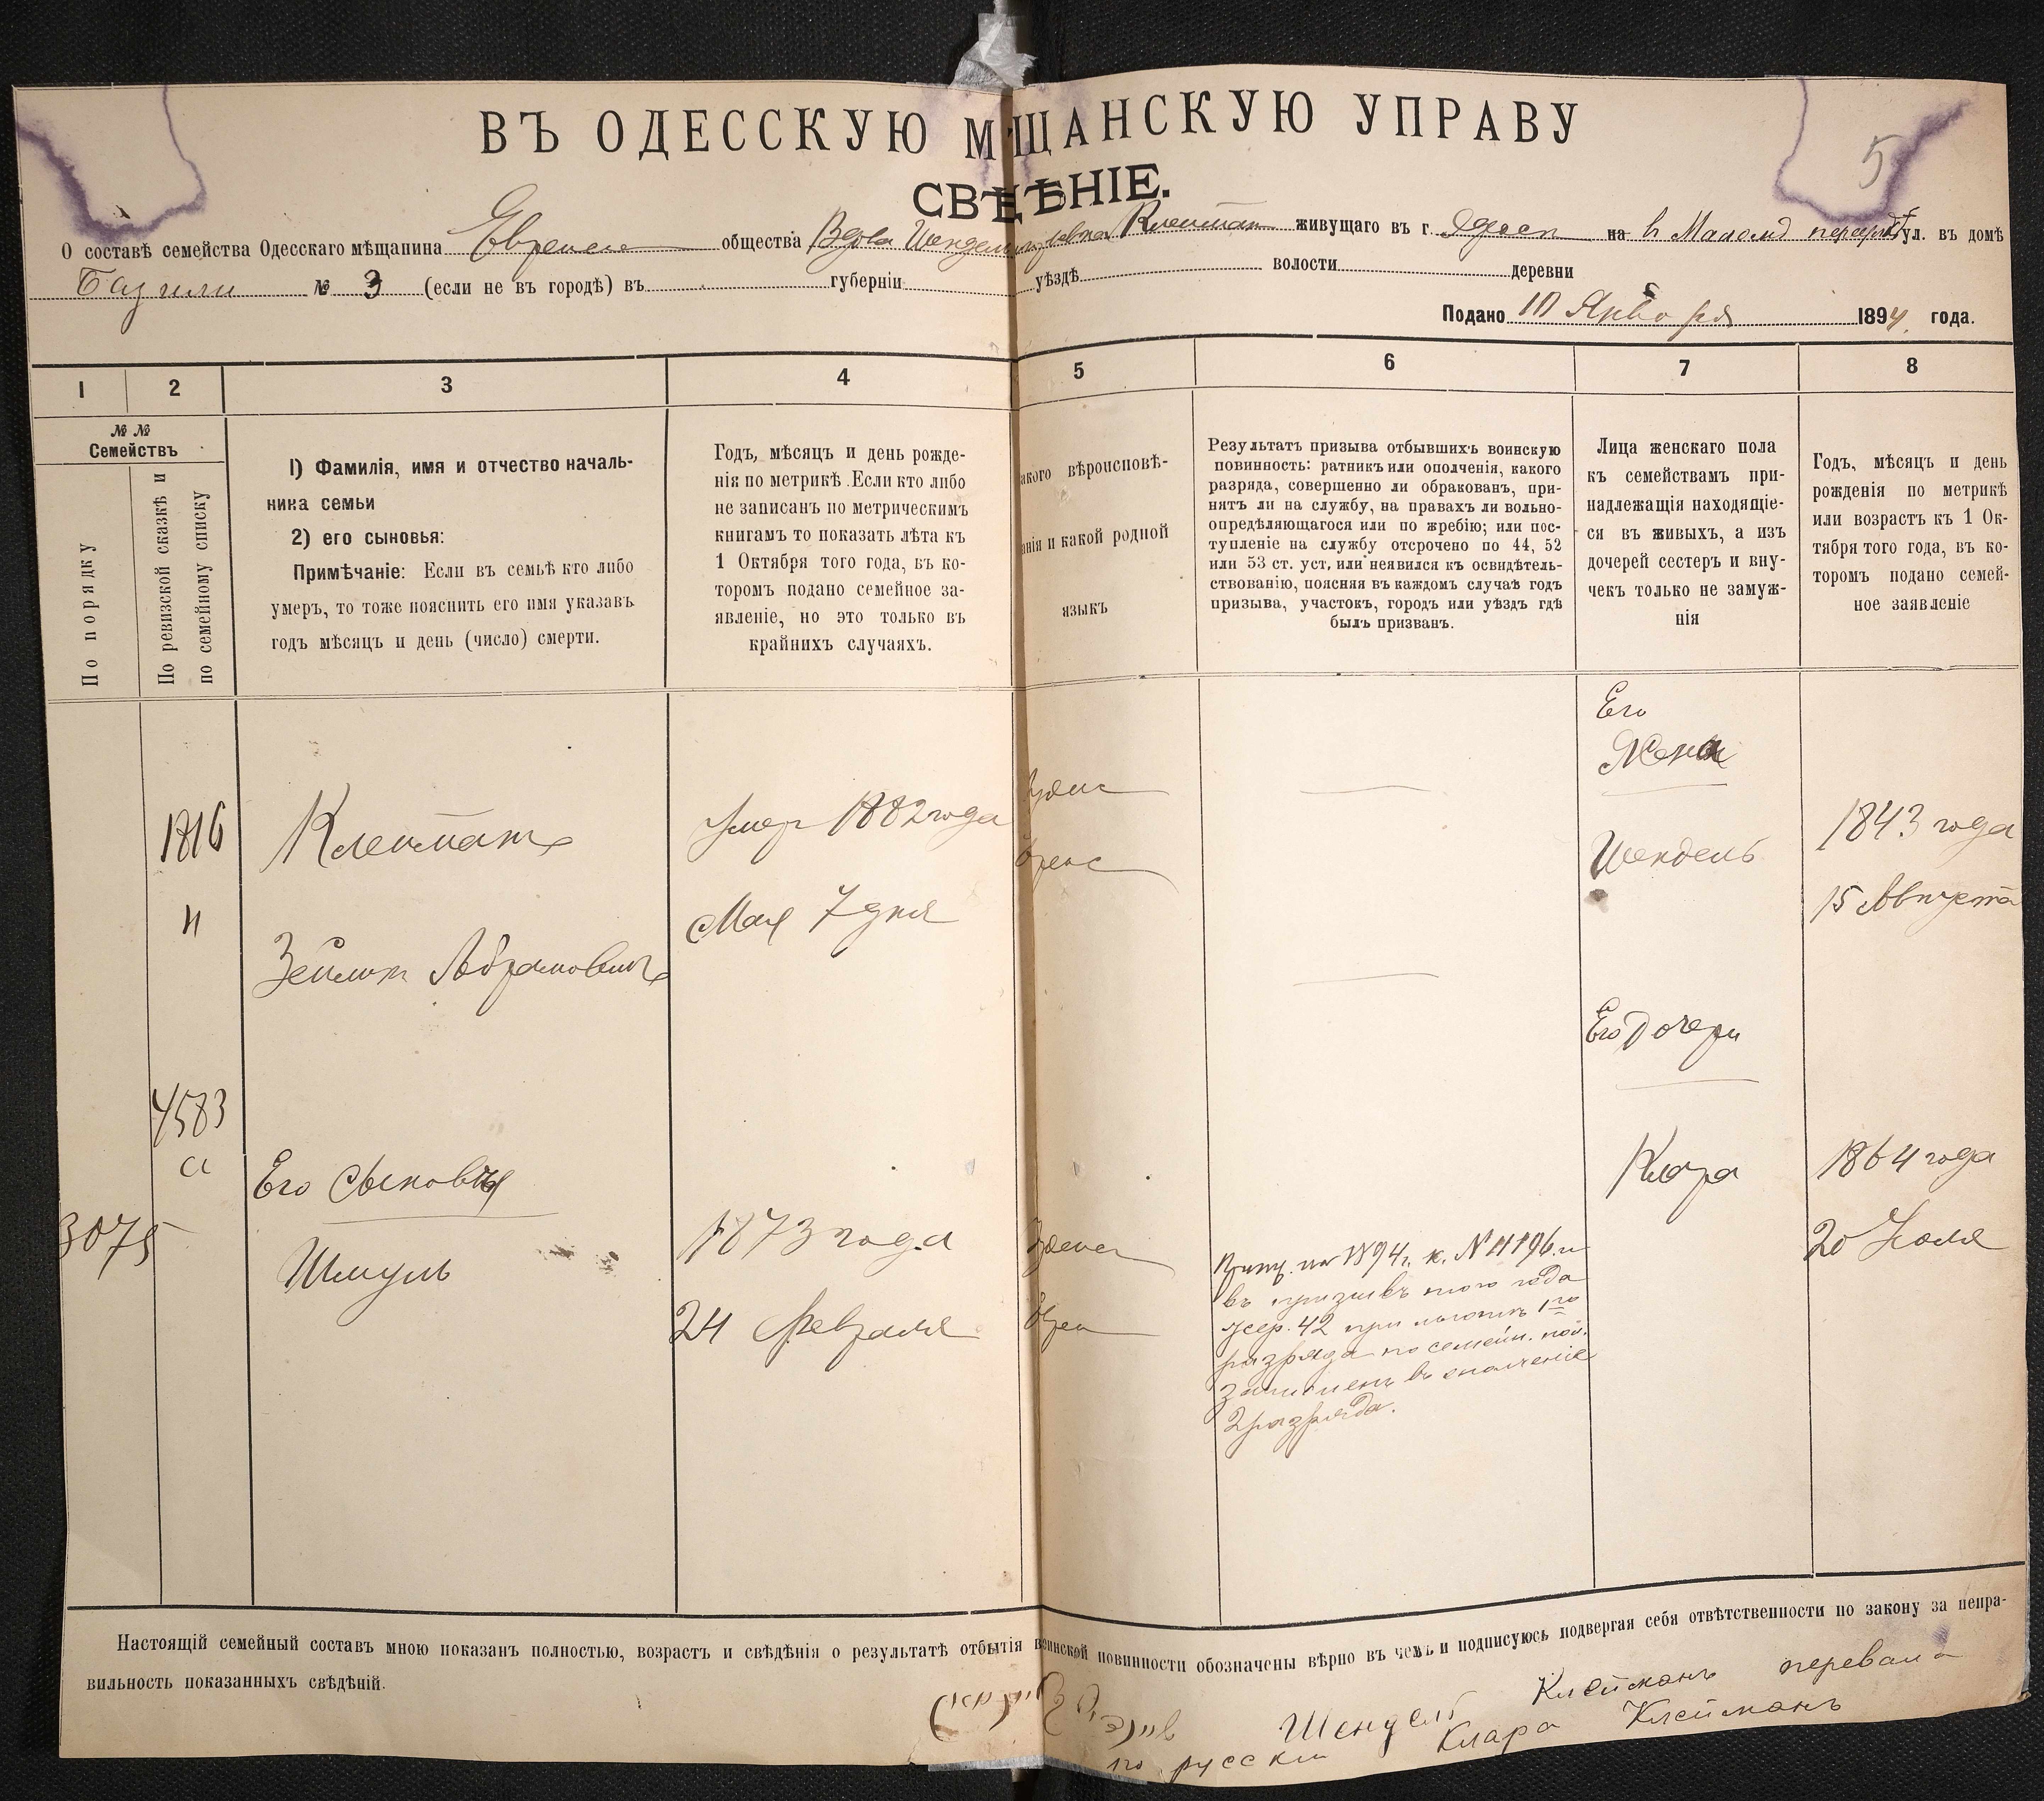 ВЪ ОДЕССКУЮ МѢЩАНСКУЮ УПРАВУ
СВѢДѢНІЕ.
5
О составѣ семейства Одесскаго мѣщанина Еврейск общества Вдова Шендель Клейман живущаго въ г. Одессѣ на в Малом переул ул. въ домѣ
№ 3 (если не въ городѣ) въ губерніи уѣздѣ волости деревни
Подано 10 Января 1894 года.
1 2 3 4 5 6 7 8
№ №
Семействъ
По порядку
По ревизской сказкѣ и
по семейному списку
1) Фамилія, имя и отчество началь-
ника семьи
2) его сыновья:
Примѣчаніе: Если въ семьѣ кто либо
умеръ, то тоже пояснить его имя указавъ
годъ мѣсяцъ и день (число) смерти.
Годъ, мѣсяцъ и день рожде-
нія по метрикѣ. Если кто либо
не записанъ по метрическимъ
книгамъ то показать лѣта къ
1 Октября того года, въ ко-
торомъ подано семейное за-
явленіе, но это только въ
крайнихъ случаяхъ.
акого вѣроисповѣ-
анія и какой родной
языкъ
Результатъ призыва отбывшихъ воинскую
повинность: ратникъ или ополченія, какого
разряда, совершенно ли обракованъ, при-
нятъ ли на службу, на правахъ ли вольно-
опредѣляющагося или по жребію; или пос-
тупленіе на службу отсрочено по 44, 52
или 53 ст. уст, или неявился къ освидѣтель-
ствованію, поясняя въ каждомъ случаѣ годъ
призыва, участокъ, городъ или уѣздъ гдѣ
былъ призванъ.
Лица женскаго пола
къ семействамъ при-
надлежащія находящіе-
ся въ живыхъ, а изъ
дочерей сестеръ и вну-
чекъ только не замуж-
нія
Годъ, мѣсяцъ и день
рожденія по метрикѣ
или возрастъ къ 1 Ок-
тября того года, въ ко-
торомъ подано семей-
ное заявленіе
Его
Жена
1816
Клейманъ
Умер 1882 года
Іудейс
Шендель
1843 года
и
Мая 7 дня
Еврейс
15 Августа
Зейлик Абрамовичъ
Его Дочери
4583
а
Его Сыновья
Клара
1864 года
3075
Шмуль
1873 года
Іудейс
20 Іюля
24 Февраля
Еврей
Прип. на 1894 г. к. № 4196. и
въ призывъ того года
жер. 42 при льготѣ 1го
разряда по семейн. пол.
зачисленъ въ ополченіе
2 разряда.
Настоящій семейный составъ мною показанъ полностью, возрастъ и свѣдѣнія о результатѣ отбытія воинской повинности обозначены вѣрно въ чемъ и подписуюсь подвергая себя отвѣтственности по закону за непра-
вильность показанныхъ свѣдѣній.
Шендель Клейманъ перевала
по русски Клара Клейманъ